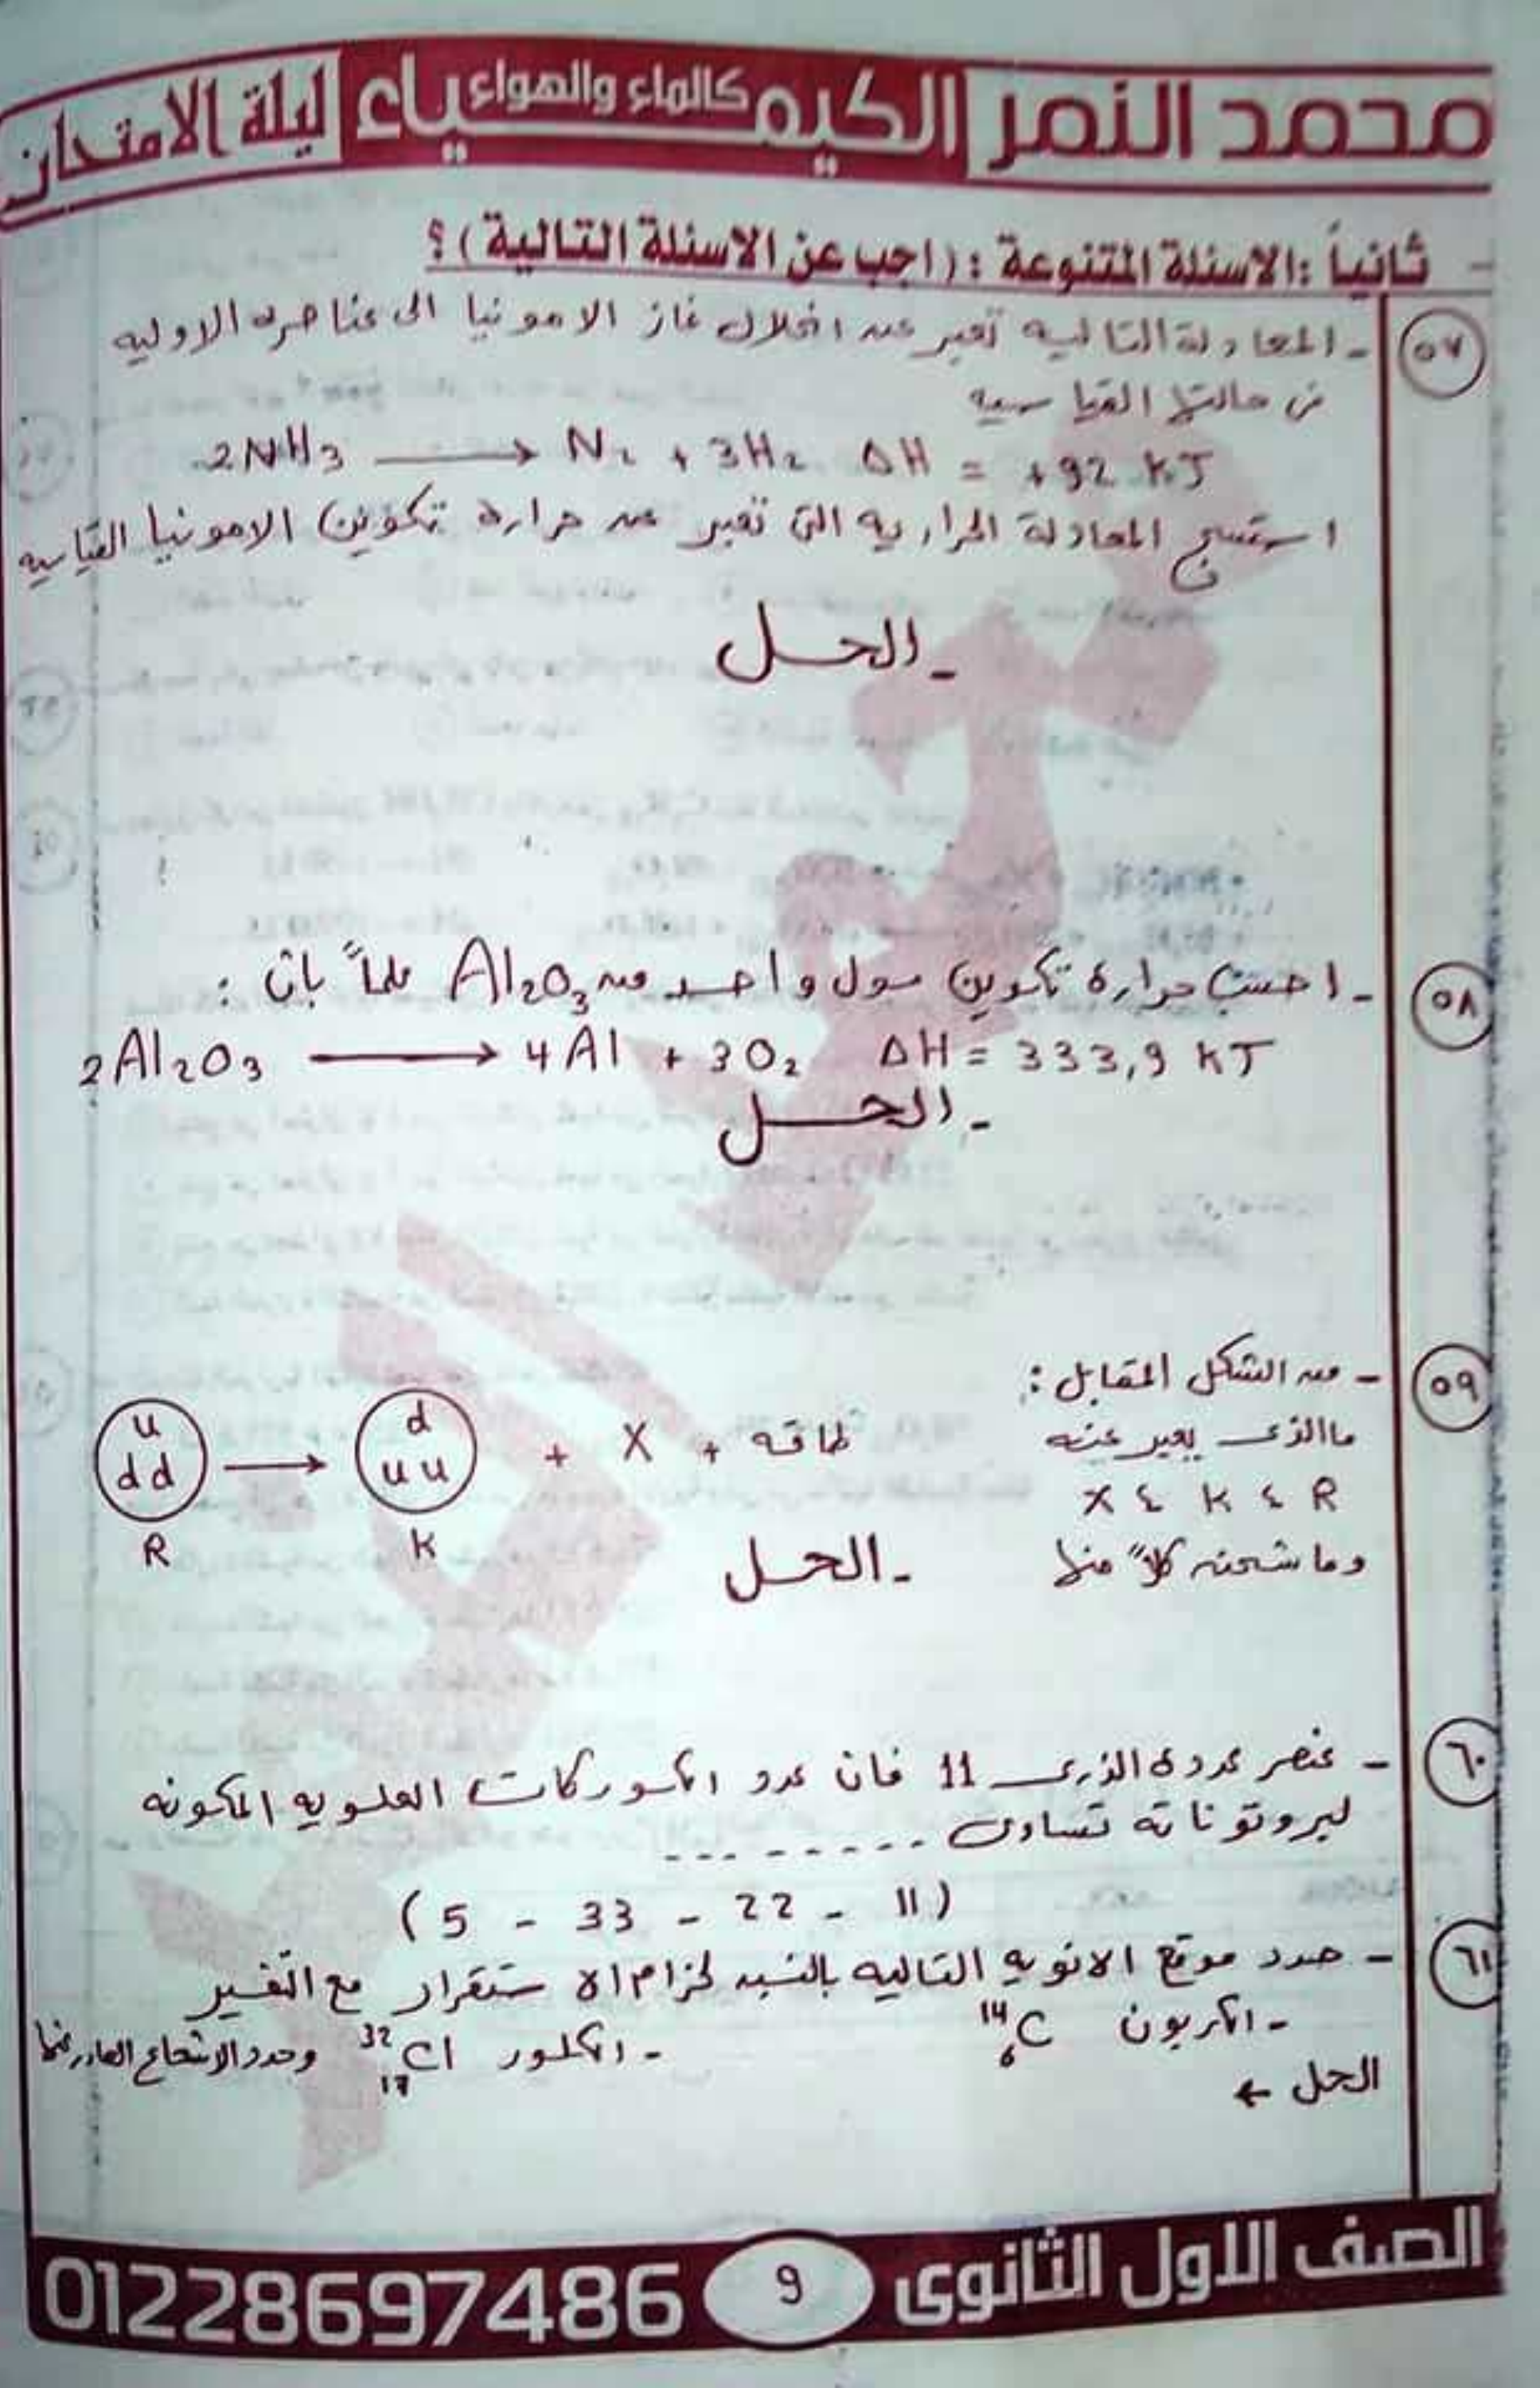 محمد النمر الكيمياء كالماء والهواء ليلة الامتحان
- ثانياً : الاسئلة المتنوعة : (اجب عن الاسئلة التالية) ؟
٥٧ - المعادلة التاليه تعبر عن انحلال غاز الامونيا الى عناصره الاوليه
فى حالتها القياسيه
2NH3 ⟶ N2 + 3H2 ΔH = +92 kJ
استنتج المعادلة الحراريه التى تعبر عن حرارة تكوين الامونيا القياسيه
- الحل
٥٨ - احسب حرارة تكوين مول واحد من Al2O3 علماً بان :
2Al2O3 ⟶ 4Al + 3O2 ΔH = 333,9 kJ
- الحل
٥٩ - من الشكل المقابل :
ما الذى يعبر عنه
R ، K ، X
وما شحنه كلاً منها
u d
dd ⟶ uu + X + طاقه
R K
- الحل
٦٠ - عنصر عدده الذرى 11 فان عدد الكوركات العلويه المكونه
لبروتوناته تساوى ---------
(5 - 33 - 22 - 11)
٦١ - حدد موقع الانويه التاليه بالنسبه لحزام الاستقرار مع التفسير
- الكربون ¹⁴₆C - الكلور ³²₁₇Cl وحدد الاشعاع الصادر منها
الحل ←
الصف الاول الثانوى 9 01228697486